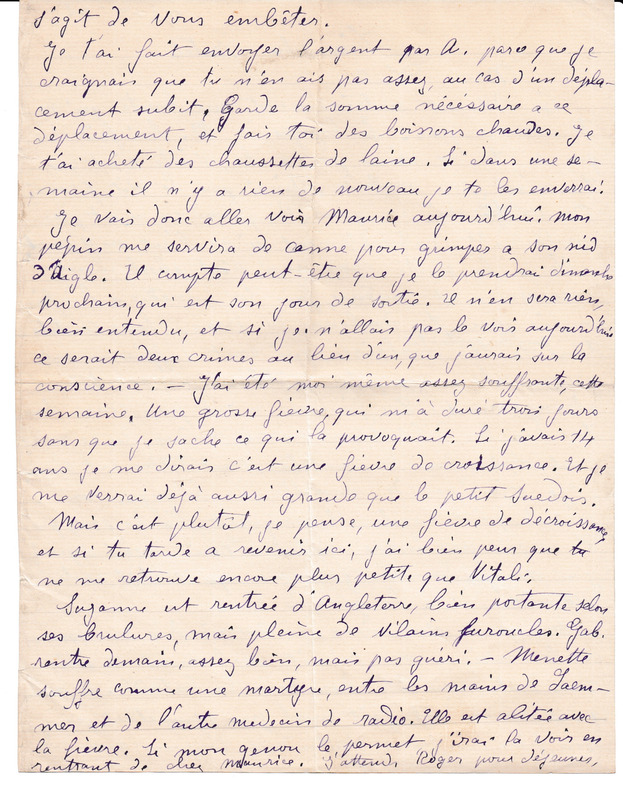 s'agit de vous embêter.
Je t'ai fait envoyer l'argent par A. parce que je
craignais que tu n'en ais pas assez, au cas d'un dépla-
cement subit. Garde la somme nécessaire a ce
déplacement, et fais toi des boissons chaudes. Je
t'ai acheté des chaussettes de laine. Si dans une se-
maine il n'y a rien de nouveau je te les enverrai.
Je vais donc aller voir Maurice aujourd'hui. mon
pépin me servira de canne pour grimper a son nid
d'aigle. Il compte peut-être que je le prendrai dimanche
prochain, qui est son jour de sortie. Il n'en sera rien,
bien entendu, et si je n'allais pas le voir aujourd'hui
ce serait deux crimes au lieu d'un, que j'aurais sur la
conscience. - J'ai été moi même assez souffrante, cette
semaine. Une grosse fièvre, qui m'à duré trois jours
sans que je sache ce qui la provoquait. Si j'avais 14
ans je me dirais c'est une fièvre de croissance. Et je
me verrai déjà aussi grande que le petit Suedois.
Mais c'est plutôt, je pense, une fièvre de décroissance
et si tu tarde a revenir ici, j'ai bien peur que tu
ne me retrouve encore plus petite que Vitali.
Suzanne est rentrée d'Angleterre, bien portante selon
ses brulures, mais pleine de vilains furoncles. Gab.
rentre demain, assez bien, mais pas guéri. - Menette
souffre comme une martyre, entre les mains de Laem-
mer et de l'autre medecin de radio. Elle est alitée avec
la fièvre. Si mon genou le permet j'irai la voir en
rentrant de chez Maurice. J'attends Roger pour déjeuner,